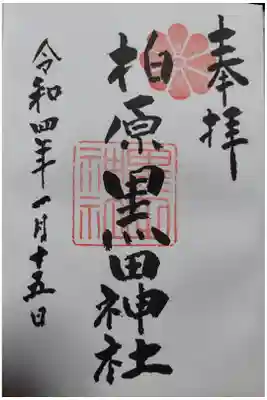 奉拝
柏原黒田神社
令和四年一月十五日